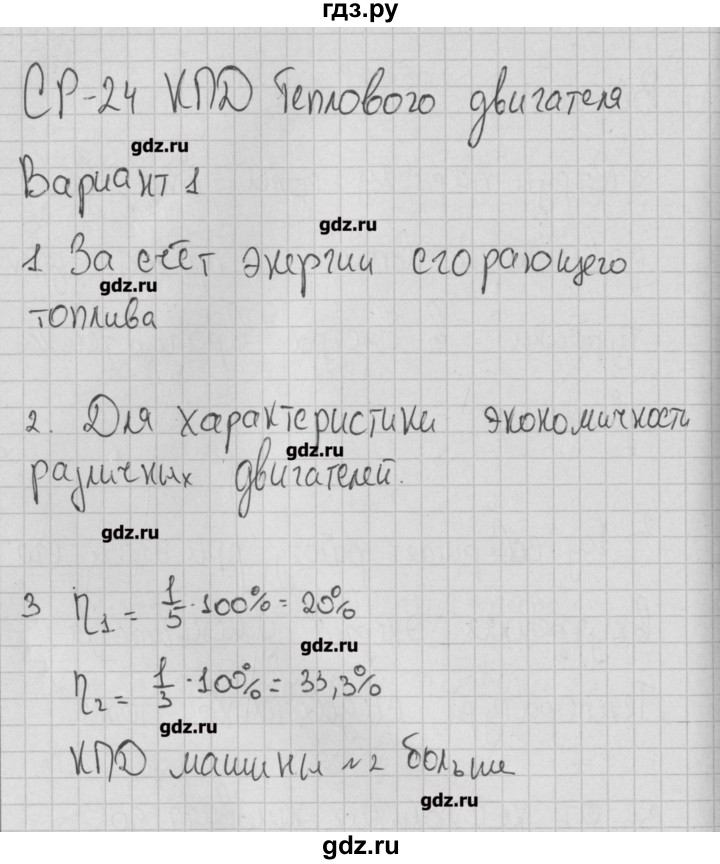 гдз.ру
СР-24 КПД Теплового двигателя
gdz.ru
Вариант 1
gdz.ru
1 За счёт энергии сгорающего
gdz.ru
топлива
2. Для характеристики экономичности
gdz.ru
различных двигателей.
gdz.ru
3 η1 = 1/5 · 100% = 20%
gdz.ru
η2 = 1/3 · 100% = 33,3%
gdz.ru
КПД машины №2 больше
gdz.ru
gdz.ru